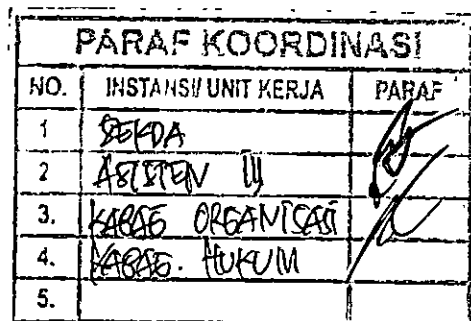 PARAF KOORDINASI
NO. INSTANSI/ UNIT KERJA PARAF
1 SEKDA
2 ASISTEN III
3. KABAG ORGANISASI
4. KABAG. HUKUM
5.